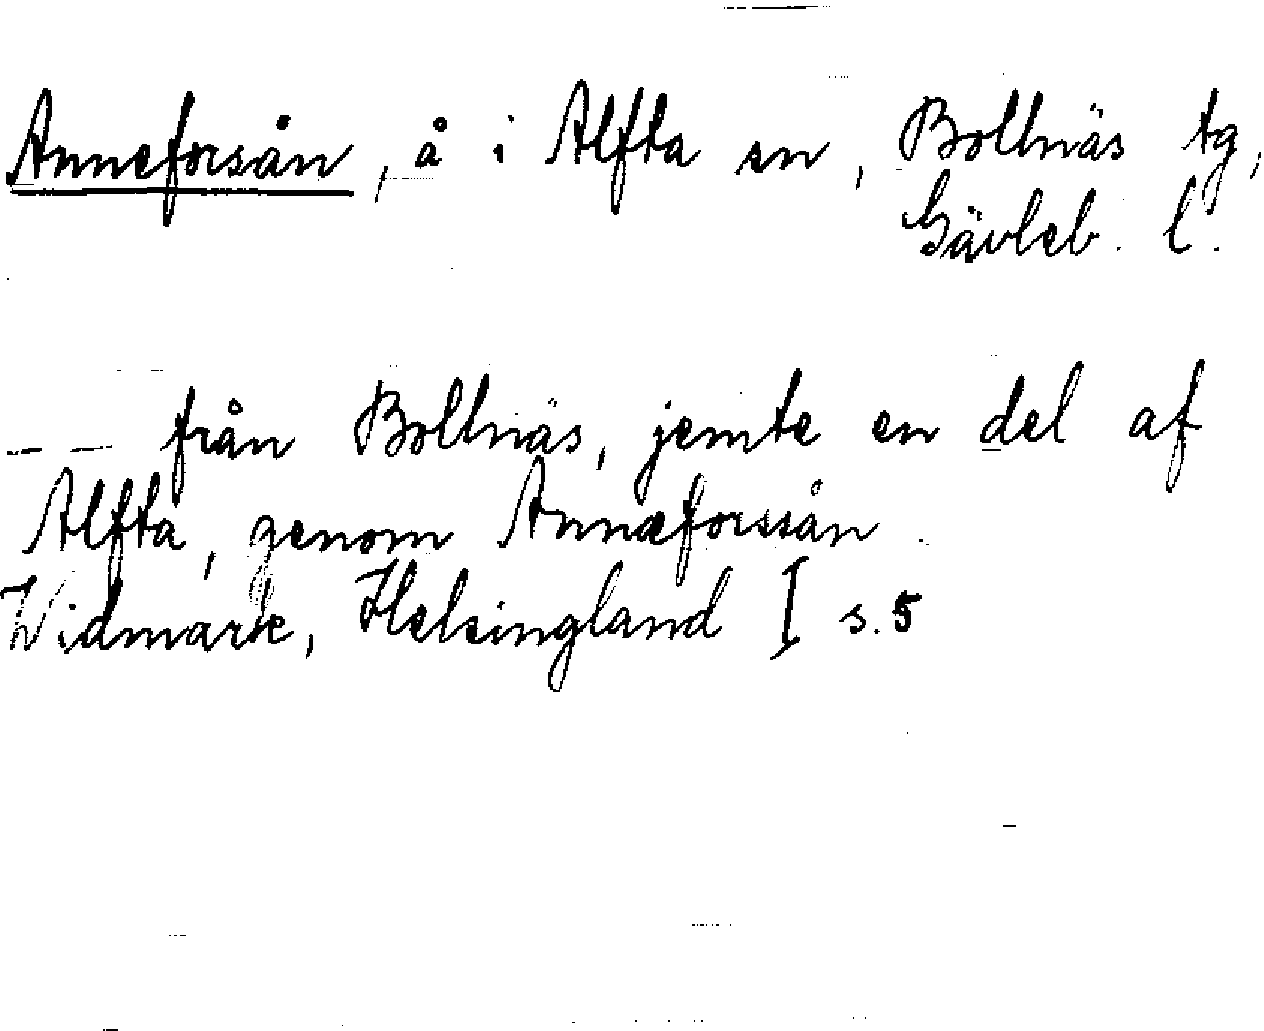 Anneforsån, å i Alfta sn, Bollnäs tg,
Gävleb. l.
— — från Bollnäs, jemte en del af
Alfta, genom Annæforssån.
Widmark, Helsingland I s. 5